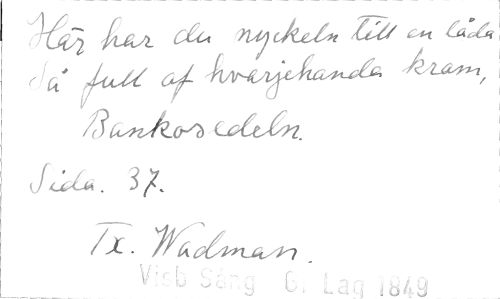 Här har du nyckeln till en låda
Så full af hvarjehanda kram,
Bankosedeln.
Sida. 37.
Tx. Wadman.
Visb Sång G. Lag 1849